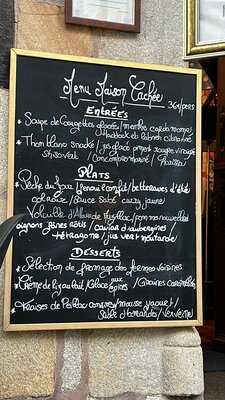 Menu Maison Cachée
36€/pers
ENTRÉES
* Soupe de Courgettes glacées / menthe cardamome /
Haddock et labneh citronné
* Thon blanc snaké / jus glacé piment rouge vinaigre
shisovert / Concombre mariné /
PLATS
* Pêche du jour / fenouil confit / betteraves d'été
/ Sauce Sabé curry jaune
* Volaille d'Alice de / pommes nouvelles
oignons fânes rôtis / Caviar d'aubergines /
tétragone / jus vert moutarde
DESSERTS
* Sélection de fromage des fermes voisines
* Crème de riz au lait / Glace aux épices / Graines caramélisées
* Fraises de / mousse yaourt /
Sablé d'amandes / Verveine